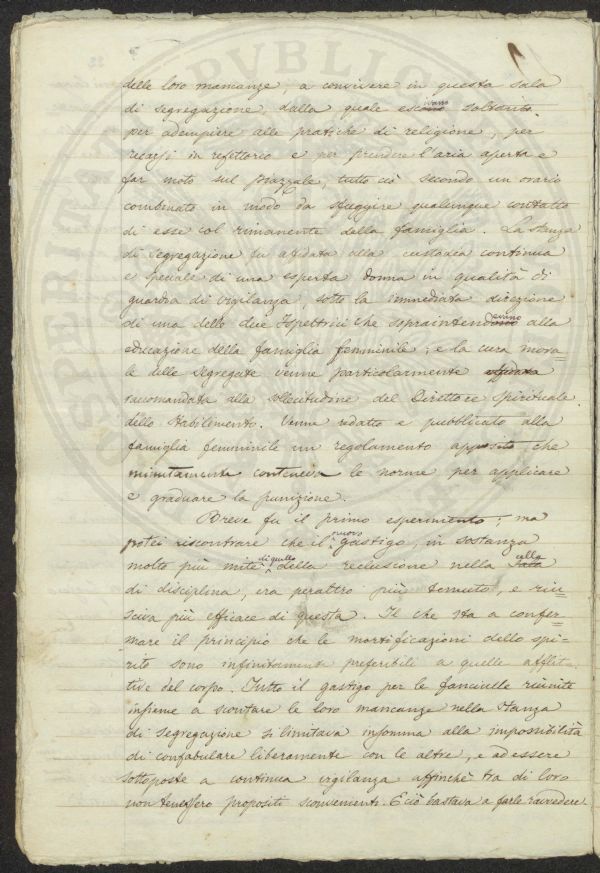 delle loro mancanze, a convivere in questa sala
di segregazione, dalla quale escivano soltanto
per adempiere alle pratiche di religione, per
recarsi in refettorio e per prendere l'aria aperta e
far moto sul piazzale, tutto ciò secondo un orario
combinato in modo da sfuggire qualunque contatto
di esse col rimanente della famiglia. La stanza
di segregazione fu affidata alla custodia continua
e speciale di una esperta donna in qualità di
guardia di vigilanza, sotto la immediata direzione
di una delle due Ispettrici che sopraintendevano alla
educazione della famiglia femminile; e la cura mora=
le delle segregate venne particolarmente affidata
racomandata alla sollecitudine del Direttore Spirituale
dello Stabilimento. Venne redatto e pubblicato alla
famiglia femminile un regolamento apposito che
minutamente conteneva le norme per applicare
e graduare la punizione.
Breve fu il primo esperimento; ma
potei riscontrare che il nuovo gastigo, in sostanza
molto più mite di quello della reclusione nella cella
di disciplina, era peraltro più temuto, e riu=
sciva più efficace di questa. Il che sta a confer=
mare il principio che le mortificazioni dello spi=
rito sono infinitamente preferibili a quelle afflit=
tive del corpo. Tutto il gastigo per le fanciulle riunite
insieme a scontare le loro mancanze nella stanza
di segregazione si limitava insomma alla impossibilità
di confabulare liberamente con le altre, e ad essere
sottoposte a continua vigilanza affinchè tra di loro
non tenessero propositi sconvenienti. E ciò bastava a farle ravvedere